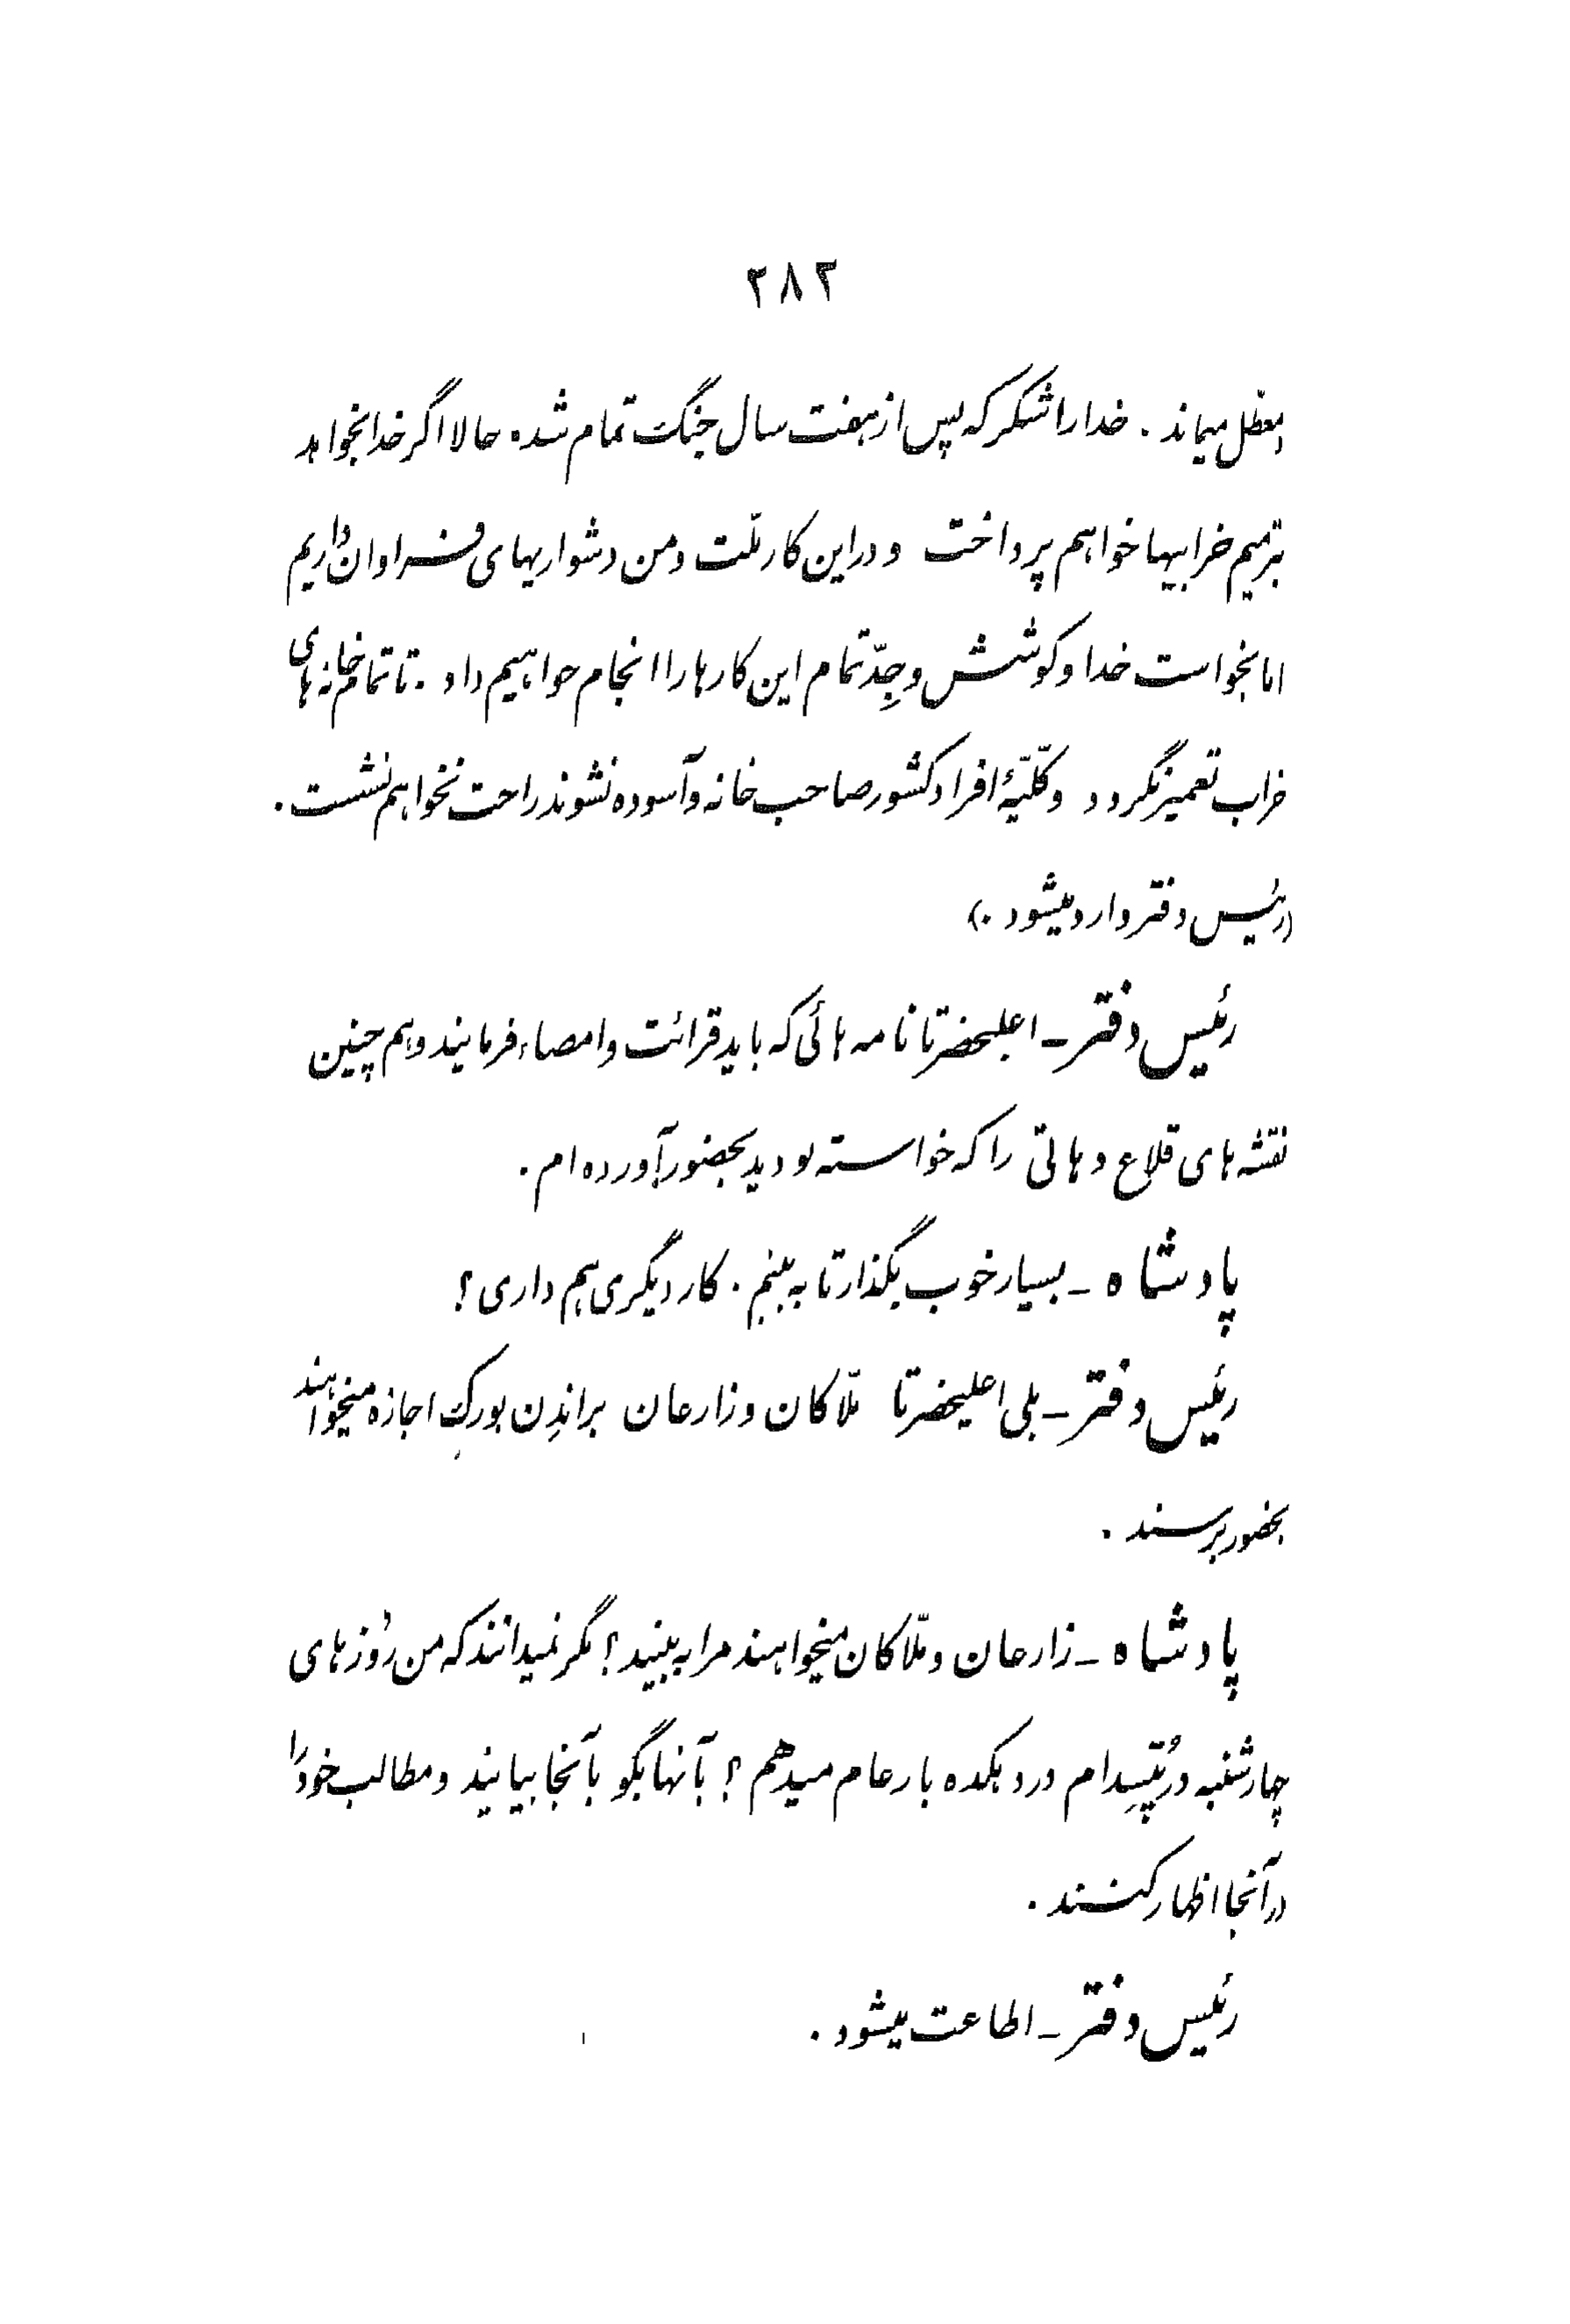 ۲۸۲
معطل میماند. خدا را شکر که پس از هفت سال جنگ تمام شد. حالا اگر خدا بخواهد
بترمیم خرابیها خواهم پرداخت و در این کار ملّت و من دشواریهای فراوان داریم
اما بخواست خدا و کوشش و جِدّ تمام این کارها را انجام خواهیم داد. تا تمام خانه‌های
خراب تعمیر نگردد و کلّیّهٔ افراد کشور صاحب خانه و آسوده نشوند راحت نخواهم نشست.
(رئیس دفتر وارد میشود.)
رئیس دفتر ـ اعلیحضرتا نامه هائی که باید قرائت و امضاء فرمایند و هم چنین
نقشه های قلاع و هاتی را که خواسته بودید بحضور آورده ام.
پادشاه ـ بسیار خوب بگذار تا به بینم. کار دیگری هم داری؟
رئیس دفتر ـ بلی اعلیحضرتا ملّاکان و زارعان براندِن بورک اجازه میخواهند
بحضور برسند.
پادشاه ـ زارعان و ملّاکان میخواهند مرا به بینند؟ مگر نمیدانند که من رُوزهای
چهارشنبه در پُتسِدام در دهکده بار عام میدهم؟ بآنها بگو بآنجا بیایند و مطالب خود را
در آنجا اظهار کنند.
رئیس دفتر ـ اطاعت میشود.